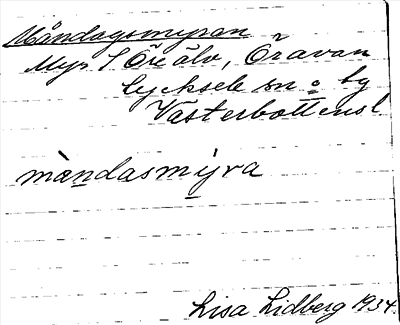 Måndagsmyran
Myr S Öreälv, Öravan
Lycksele sn o. tg
Västerbottensl
màndasmýra
Lisa Lidberg 1934.